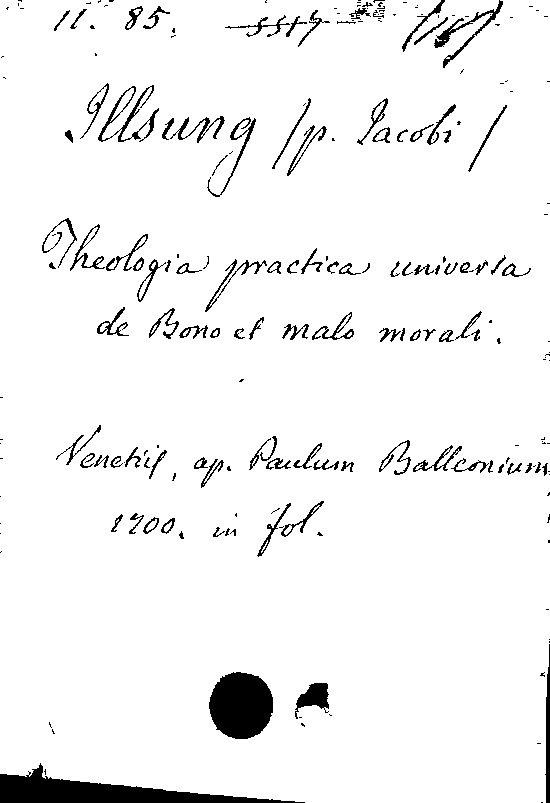 11. 85. 5517 (18)
Illsung /p. Jacobi/
Theologia practica universa
de Bono et malo morali.
Venetiis, ap. Paulum Balleonium
1700. in fol.